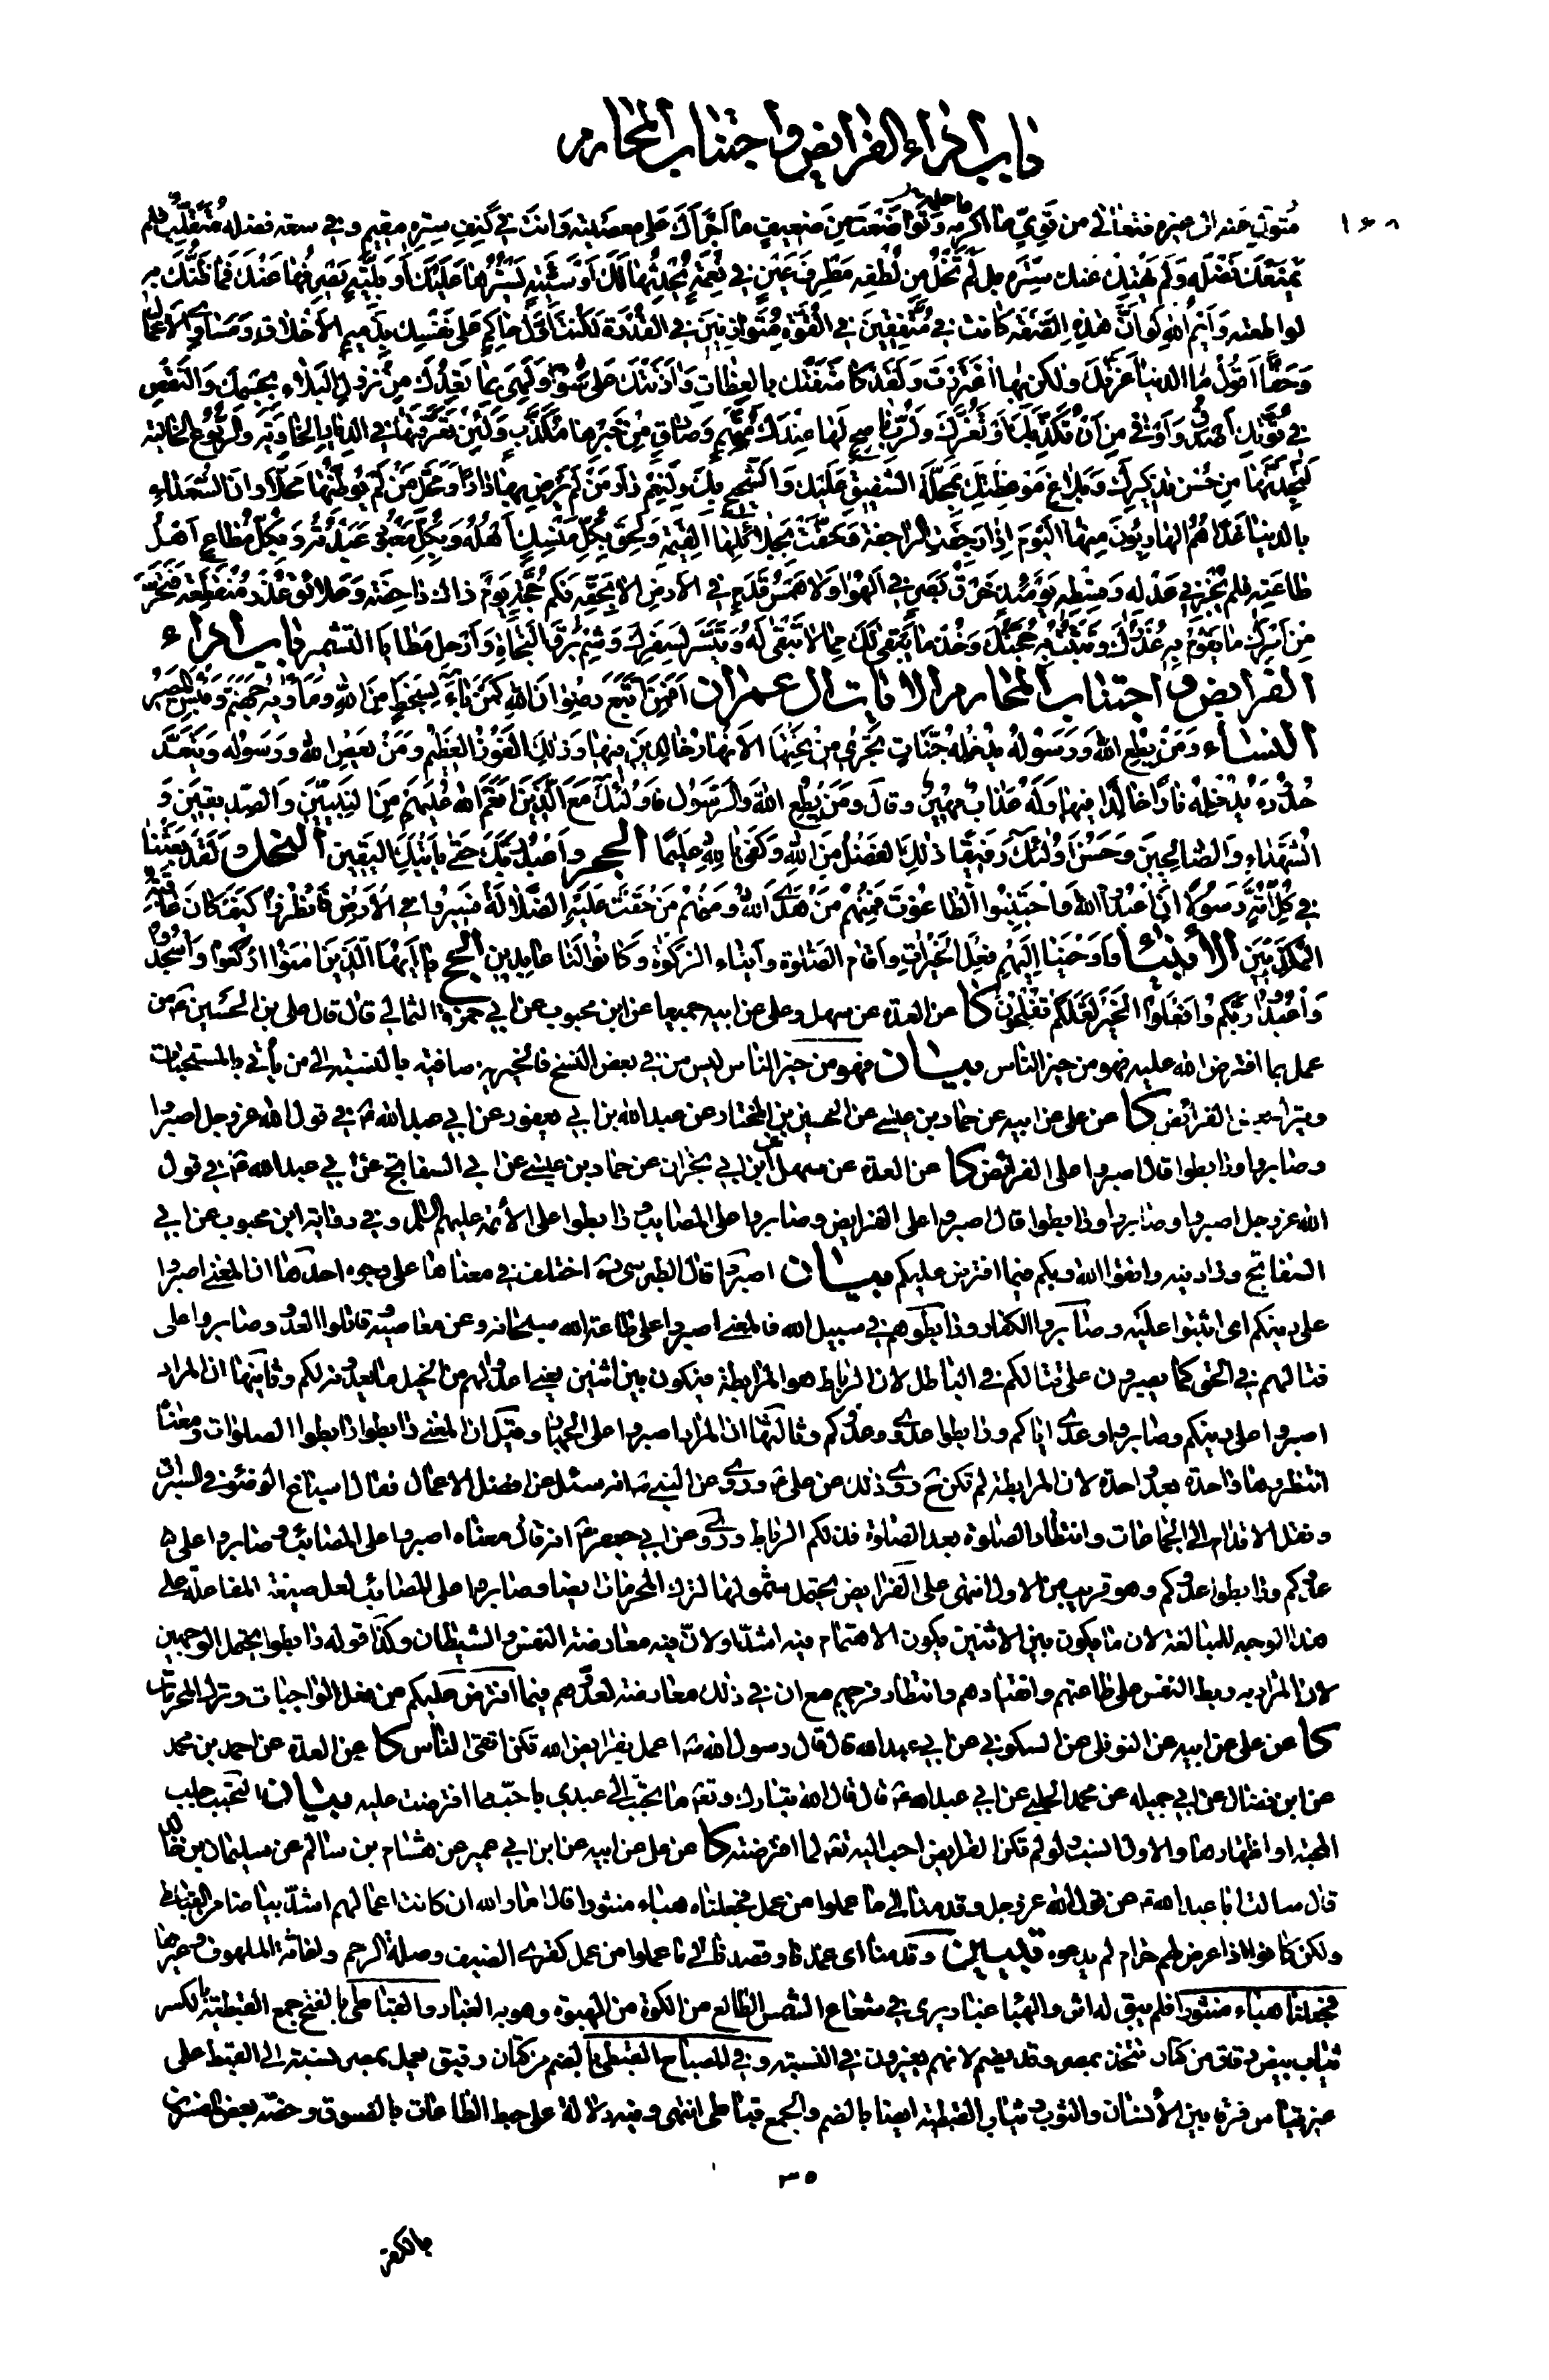 باب اداء الفرايض و اجتناب المحارم
١٦٨
متول عنه الى غيره فتعالى من قوي ما اكرمه و تواضعت من ضعيف ما اجرأك على معصيته و انت في كنف ستره مقيم و في سعة فضله متقلب فلم
يمنعك فضله و لم يهتك عنك ستره بل لم تخل من لطفه مطرف عين في نعمة يحدثها لك او سيئة يسترها عليك او بلية يصرفها عنك فما ظنك به
لو اطعته و ايم الله لو ان هذه الصفة كانت في متفقين في القوة متوازيين في القدرة لكنت اول حاكم على نفسك بذميم الاخلاق و مساوي الاعمال
و حقا اقول ما الدنيا غرتك و لكن بها اغتررت و لقد كاشفتك بالعظات و آذنتك على سواء و لهي بما تعدك من نزول البلاء بجسمك و النقص
في قوتك اصدق و اوفى من ان تكذبك او تغرك و لرب ناصح لها عندك متهم و صادق من خبرها مكذب و لئن تعرفتها في الديار الخاوية و الربوع الخالية
لتجدنها من حسن تذكيرك و بلاغ موعظتك بمحلة الشفيق عليك و الشحيح بك و لنعم دار من لم يرض بها دارا و محل من لم يوطنها محلا و ان السعداء
بالدنيا غدا هم الهاربون منها اليوم اذا رجفت الراجفة و حقت بجلائلها القيمة و لحق بكل منسك اهله و بكل معبود عبدته و بكل مطاع اهل
طاعته فلم يجز في عدله و قسطه يومئذ خرق بصر في الهواء و لا همس قدم في الارض الا بحقه فكم حجة يوم ذاك داحضة و علائق عذر منقطعة فتحر
من امرك ما يقوم به عذرك و تثبت به حجتك و خذ ما يبقى لك مما لا تبقى له و تيسر لسفرك و شم برق النجاة و ارحل مطايا التشمير باب اداء
الفرايض و اجتناب المحارم الايات ال عمران افمن اتبع رضوان الله كمن باء بسخط من الله و مأويه جهنم و بئس المصير
النساء و من يطع الله و رسوله يدخله جنات تجري من تحتها الانهار خالدين فيها و ذلك الفوز العظيم و من يعص الله و رسوله و يتعد
حدوده يدخله نارا خالدا فيها و له عذاب مهين و قال و من يطع الله و الرسول فاولئك مع الذين انعم الله عليهم من النبيين و الصديقين و
الشهداء و الصالحين و حسن اولئك رفيقا ذلك الفضل من الله و كفى بالله عليما الحجر و اعبد ربك حتى يأتيك اليقين النحل و لقد بعثنا
في كل امة رسولا ان اعبدوا الله و اجتنبوا الطاغوت فمنهم من هدى الله و منهم من حقت عليه الضلالة فسيروا في الارض فانظروا كيف كان عاقبة
المكذبين الأنبياء و اوحينا اليهم فعل الخيرات و اقام الصلوة و ايتاء الزكوة و كانوا لنا عابدين الحج يا ايها الذين امنوا اركعوا و اسجدوا
و اعبدوا ربكم و افعلوا الخير لعلكم تفلحون كا عن العدة عن سهل و علي عن ابيه جميعا عن ابن محبوب عن ابي حمزة الثمالي قال قال علي بن الحسين ع من
عمل بما افترض الله عليه فهو من خير الناس بيان فهو من خير الناس ليس من في بعض النسخ فالخيرية اضافية بالنسبة الى من يأتي بالمستحبات
و يترك بعض الفرائض كا عن علي عن ابيه عن حماد بن عيسى عن الحسين بن المختار عن عبد الله بن ابي يعفور عن ابي عبد الله ع في قول الله عز و جل اصبروا
و صابروا و رابطوا قال اصبروا على الفرائض كا عن العدة عن سهل عن ابن ابي نجران عن حماد بن عيسى عن ابي السفاتج عن ابي عبد الله ع في قول
الله عز و جل اصبروا و صابروا و رابطوا قال اصبروا على الفرايض و صابروا على المصايب و رابطوا على الأئمة عليهم السلم و في رواية ابن محبوب عن ابي
السفاتج و زاد فيه و اتقوا الله ربكم فيما افترض عليكم بيان اصبروا قال الطبرسي ره اختلف في معناها على وجوه احدها ان المعنى اصبروا
على دينكم اي اثبتوا عليه و صابروا الكفار و رابطوهم في سبيل الله فالمعنى اصبروا على طاعة الله سبحانه و عن معاصيه قاتلوا العدو و صابروا على
قتالهم في الحق كما يصبرون على قتالكم في الباطل لان الرباط هو المرابطة فيكون بين اثنين يعني اعدوا لهم من الخيل ما يعدونه لكم و ثانيها ان المراد
اصبروا على دينكم و صابروا وعدي اياكم و رابطوا عدوي و عدوكم و ثالثها ان المراد اصبروا على الجهاد و قيل ان المعنى رابطوا رابطوا الصلوات و معناه
انتظروها واحدة بعد واحدة لان المرابطة لم تكن ح روي ذلك عن علي ع و روي عن النبي ص انه سئل عن افضل الاعمال فقال اسباغ الوضوء في السبرات
و نقل الاقدام الى الجماعات و انتظار الصلوة بعد الصلوة فذلكم الرباط و روي عن ابي جعفر ع انه قال معناه اصبروا على المصائب و صابروا على
عدوكم و رابطوا عدوكم و هو قريب من الاول انتهى على الفرايض يحتمل شمولها لترك المحرمات ايضا و صابروا على المصائب لعل صيغة المفاعلة على
هذا الوجه للمبالغة لان ما يكون بين الاثنين يكون الاهتمام فيه اشد او لان فيه معارضة النفس و الشيطان و كذا قوله رابطوا يحتمل الوجهين
لان المراد به ربط النفس على طاعتهم و انقيادهم و انتظار فرجهم مع ان في ذلك معارضة لعدوهم فيما افترض عليكم من فعل الواجبات و ترك المحرمات
كا عن علي عن ابيه عن النوفلي عن السكوني عن ابي عبد الله قال قال رسول الله ص اعمل بفرايض الله تكن اتقى الناس كا عن العدة عن احمد بن محمد
عن ابن فضال عن ابي جميلة عن محمد الحلبي عن ابي عبد الله ع قال قال الله تبارك و تع ما تحبب الي عبدي باحب مما افترضت عليه بيان التحبب جلب
المحبة او اظهارها و الاول انسب و لو لم تكن الفرايض احب اليه تع لما افترضه كا عن علي عن ابيه عن ابن ابي عمير عن هشام بن سالم عن سليمان بن خالد
قال سالت ابا عبد الله ع عن قول الله عز و جل و قدمنا الى ما عملوا من عمل فجعلناه هباء منثورا قال اما و الله ان كانت اعمالهم اشد بياضا من القباطي
و لكن كانوا اذا عرض لهم حرام لم يدعوه تبيين و قدمنا اي عمدنا و قصدنا الى ما عملوا من عمل كقرى الضيف و صلة الرحم و اغاثة الملهوف و غيرها
فجعلناه هباء منثورا فلم يبق له اثر و الهباء غبار يرى في شعاع الشمس الطالع من الكوة من الهبوة و هو به الغبار و القباطي بالفتح جمع القبطية بالكسر
ثياب بيض رقاق من كتان تتخذ بمصر و قد يضم لانهم يغيرون في النسبة و في المصباح القبطي بالضم من كتان رقيق يعمل بمصر نسبة الى القبط على
غير قياس فرقا بين الأنسان و الثوب و ثياب القبطية ايضا بالضم و الجمع قباطي انتهى و فيه دلالة على حبط الطاعات بالفسوق و خصه بعض المفسرين
٣٥
بالكفر